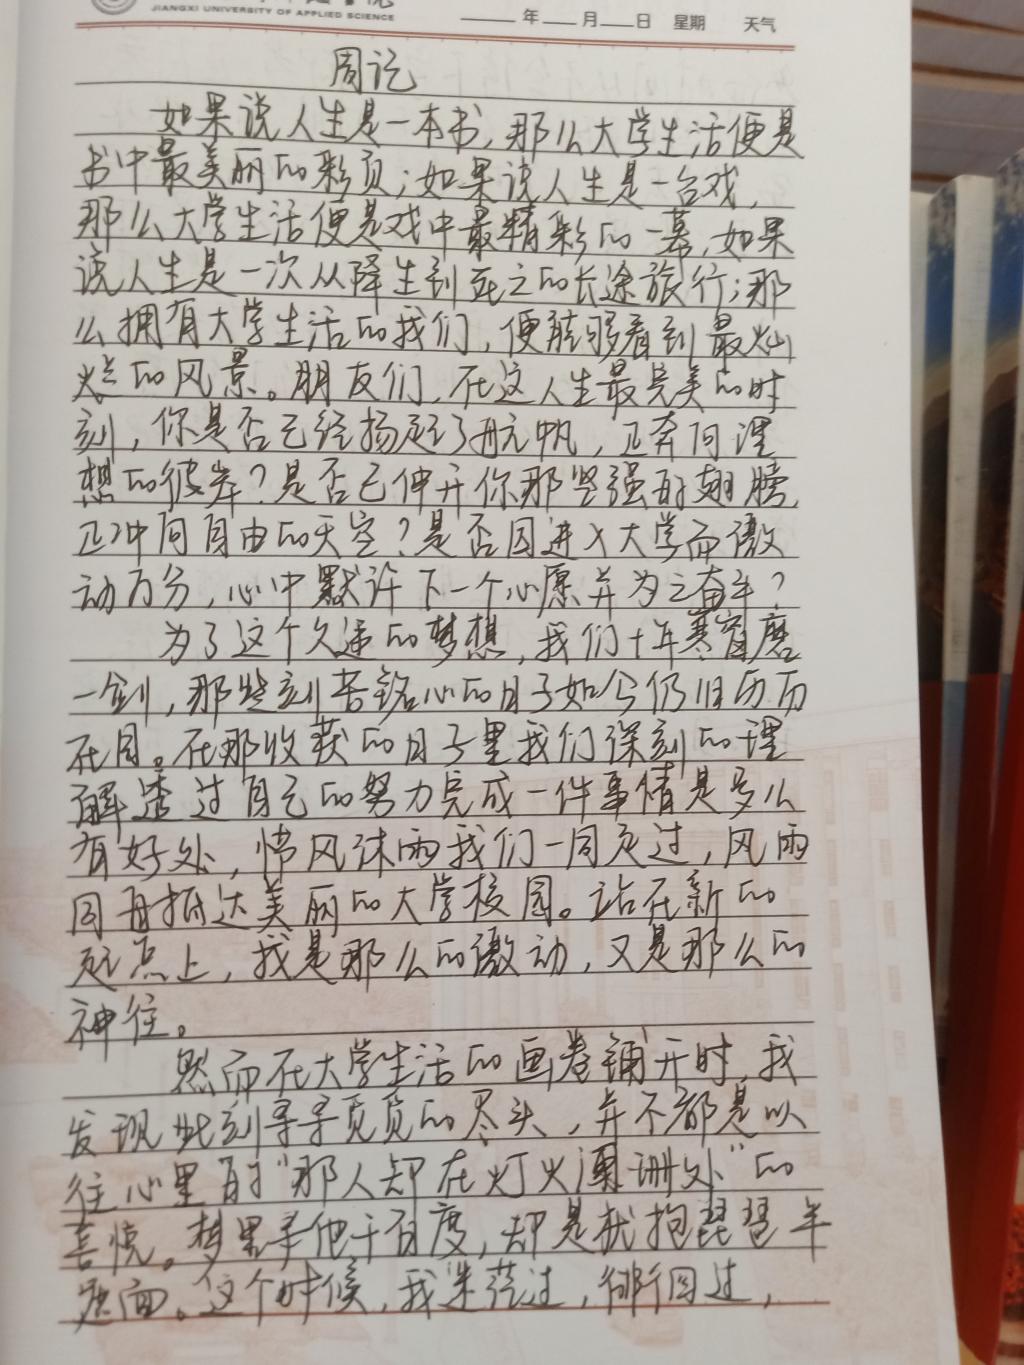 JIANGXI UNIVERSITY OF APPLIED SCIENCE
年 月 日 星期 天气
周记
如果说人生是一本书，那么大学生活便是
书中最美丽的彩页；如果说人生是一台戏，
那么大学生活便是戏中最精彩的一幕，如果
说人生是一次从降生到死亡的长途旅行；那
么拥有大学生活的我们，便能够看到最灿
烂的风景。朋友们，在这人生最完美的时
刻，你是否已经扬起了航帆，正奔向理
想的彼岸？是否已伸开你那坚强的翅膀，
正冲向自由的天空？是否因进入大学而激
动万分，心中默许下一个心愿并为之奋斗？
为了这个久违的梦想，我们十年寒窗磨
一剑，那些刻苦铭心的日子如今仍旧历历
在目。在那收获的日子里我们深刻的理
解透过自己的努力完成一件事情是多么
有好处，栉风沐雨我们一同走过，风雨
同舟抵达美丽的大学校园。站在新的
起点上，我是那么的激动，又是那么的
神往。
然而在大学生活的画卷铺开时，我
发现此刻寻寻觅觅的尽头，并不都是以
往心里的“那人却在灯火阑珊处”的
喜悦。梦里寻他千百度，却是犹抱琵琶半
遮面。这个时候，我迷茫过，徘徊过，